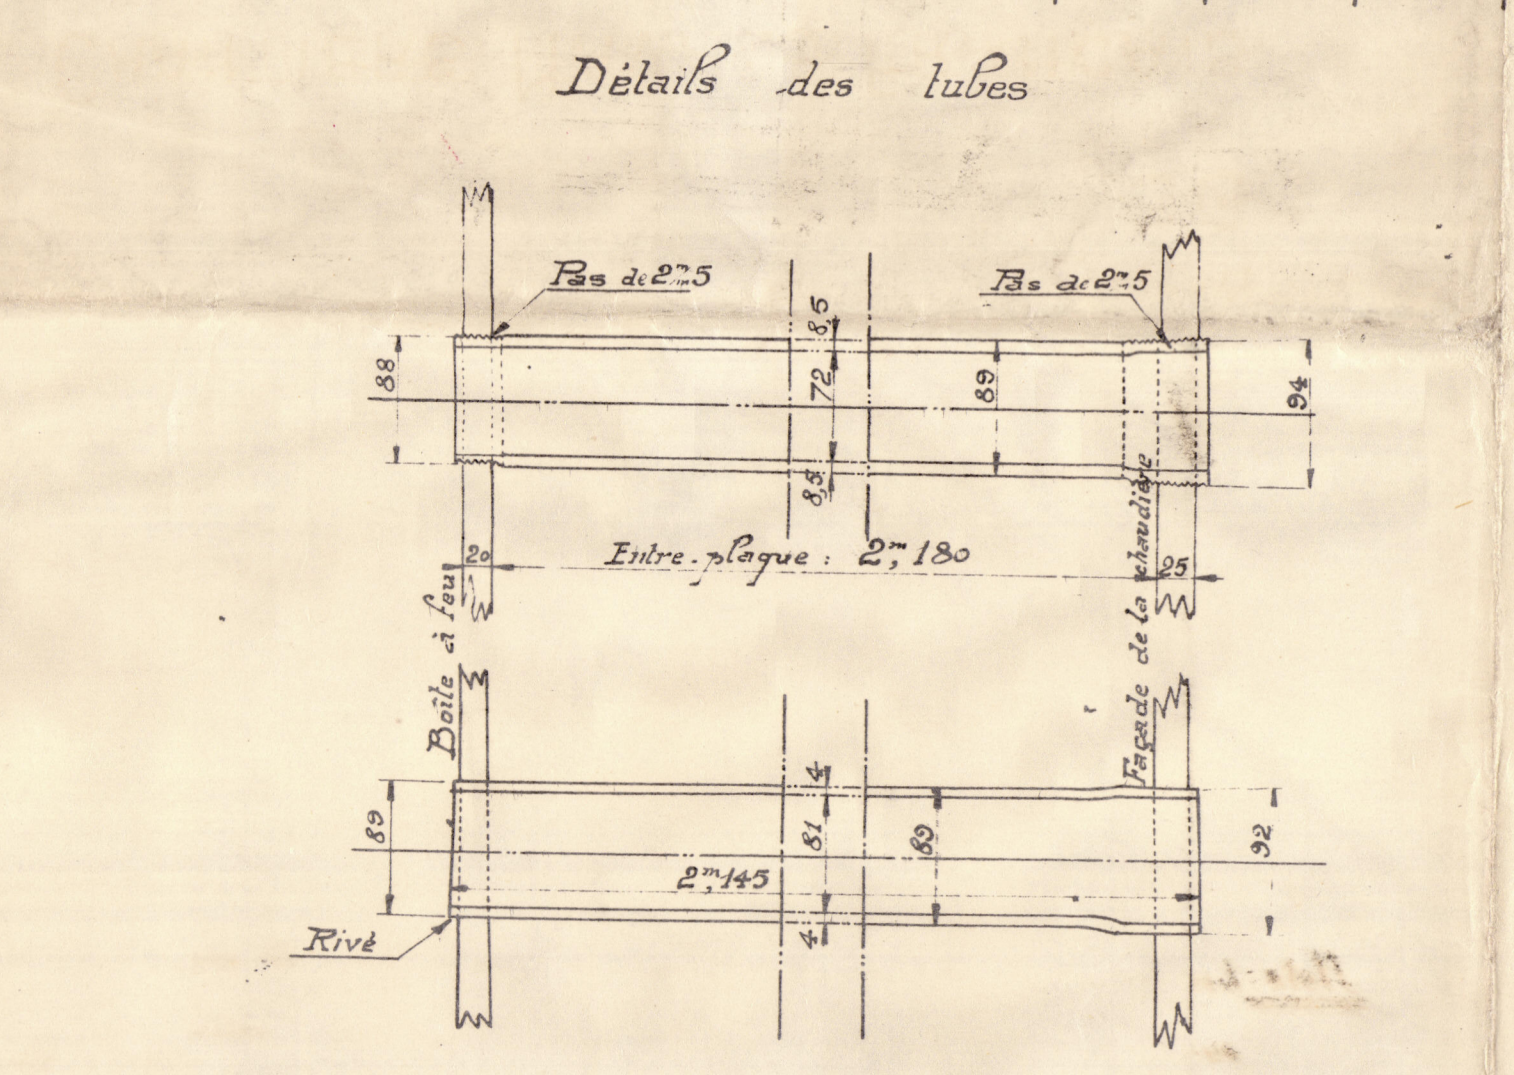 Détails des tubes
Pas de 2mm5
Pas de 2mm5
8,5
88
72
89
94
8,5
20
Entre-plaque : 2m,180
25
Boîte à feu
Façade de la chaudière
4
89
81
89
92
2m,145
4
Rivé